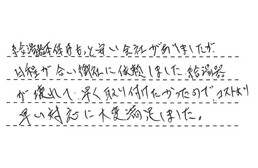 給湯器本体はもっと安い会社がありましたが
日程が合い御社に依頼しました。給湯器
が壊れて早く取り付けたかったので、コストより
早い対応に大変満足しました。